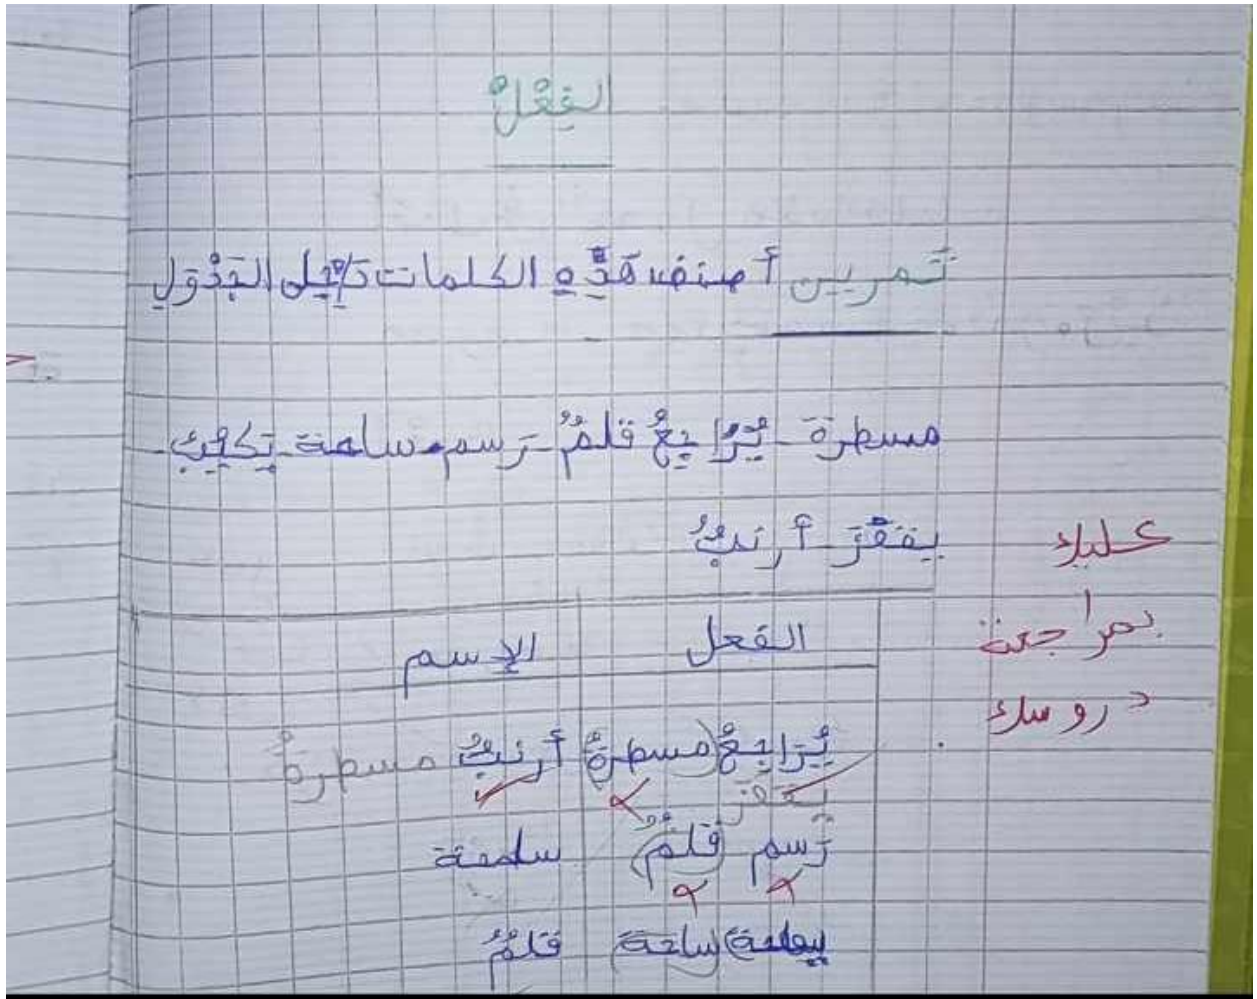 الفِعْلُ
تَمرين أصنف هَذِهِ الكلمات دَاخِل الجَدْوَلِ
مسطرة - يُرَاجِعُ قلمٌ - رَسم - ساحة - يَكتب -
يقفز أرنبٌ
عليك
بمراجعة
دروسك
الفعل الإسم
يُرَاجِعُ (مسطرةٌ) أرنبٌ مسطرةٌ
يقفز
رَسم (قلمٌ) ساحة
(ساحة) قلمٌ